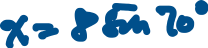 x = 8 sin 70°